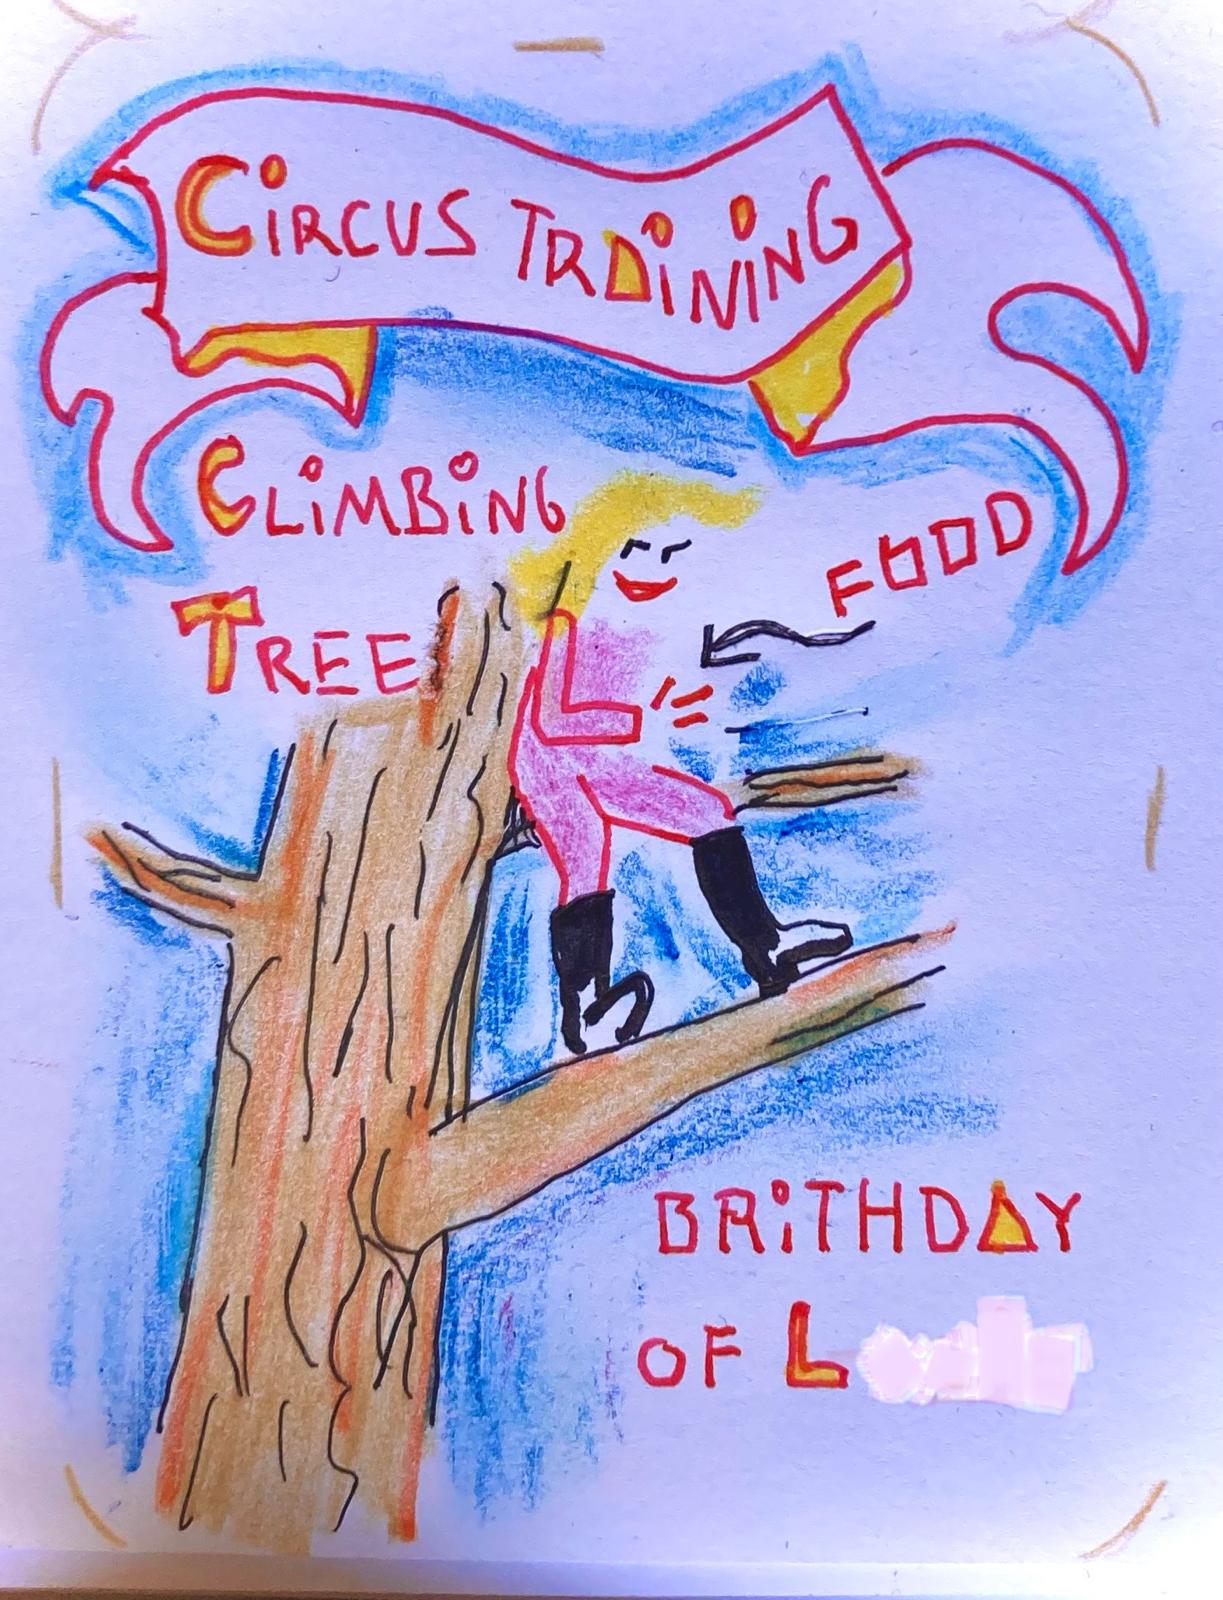 CiRCUS TRAiNiNG
CLiMBiNG
FOOD
TREE
BRiTHDAY
OF L